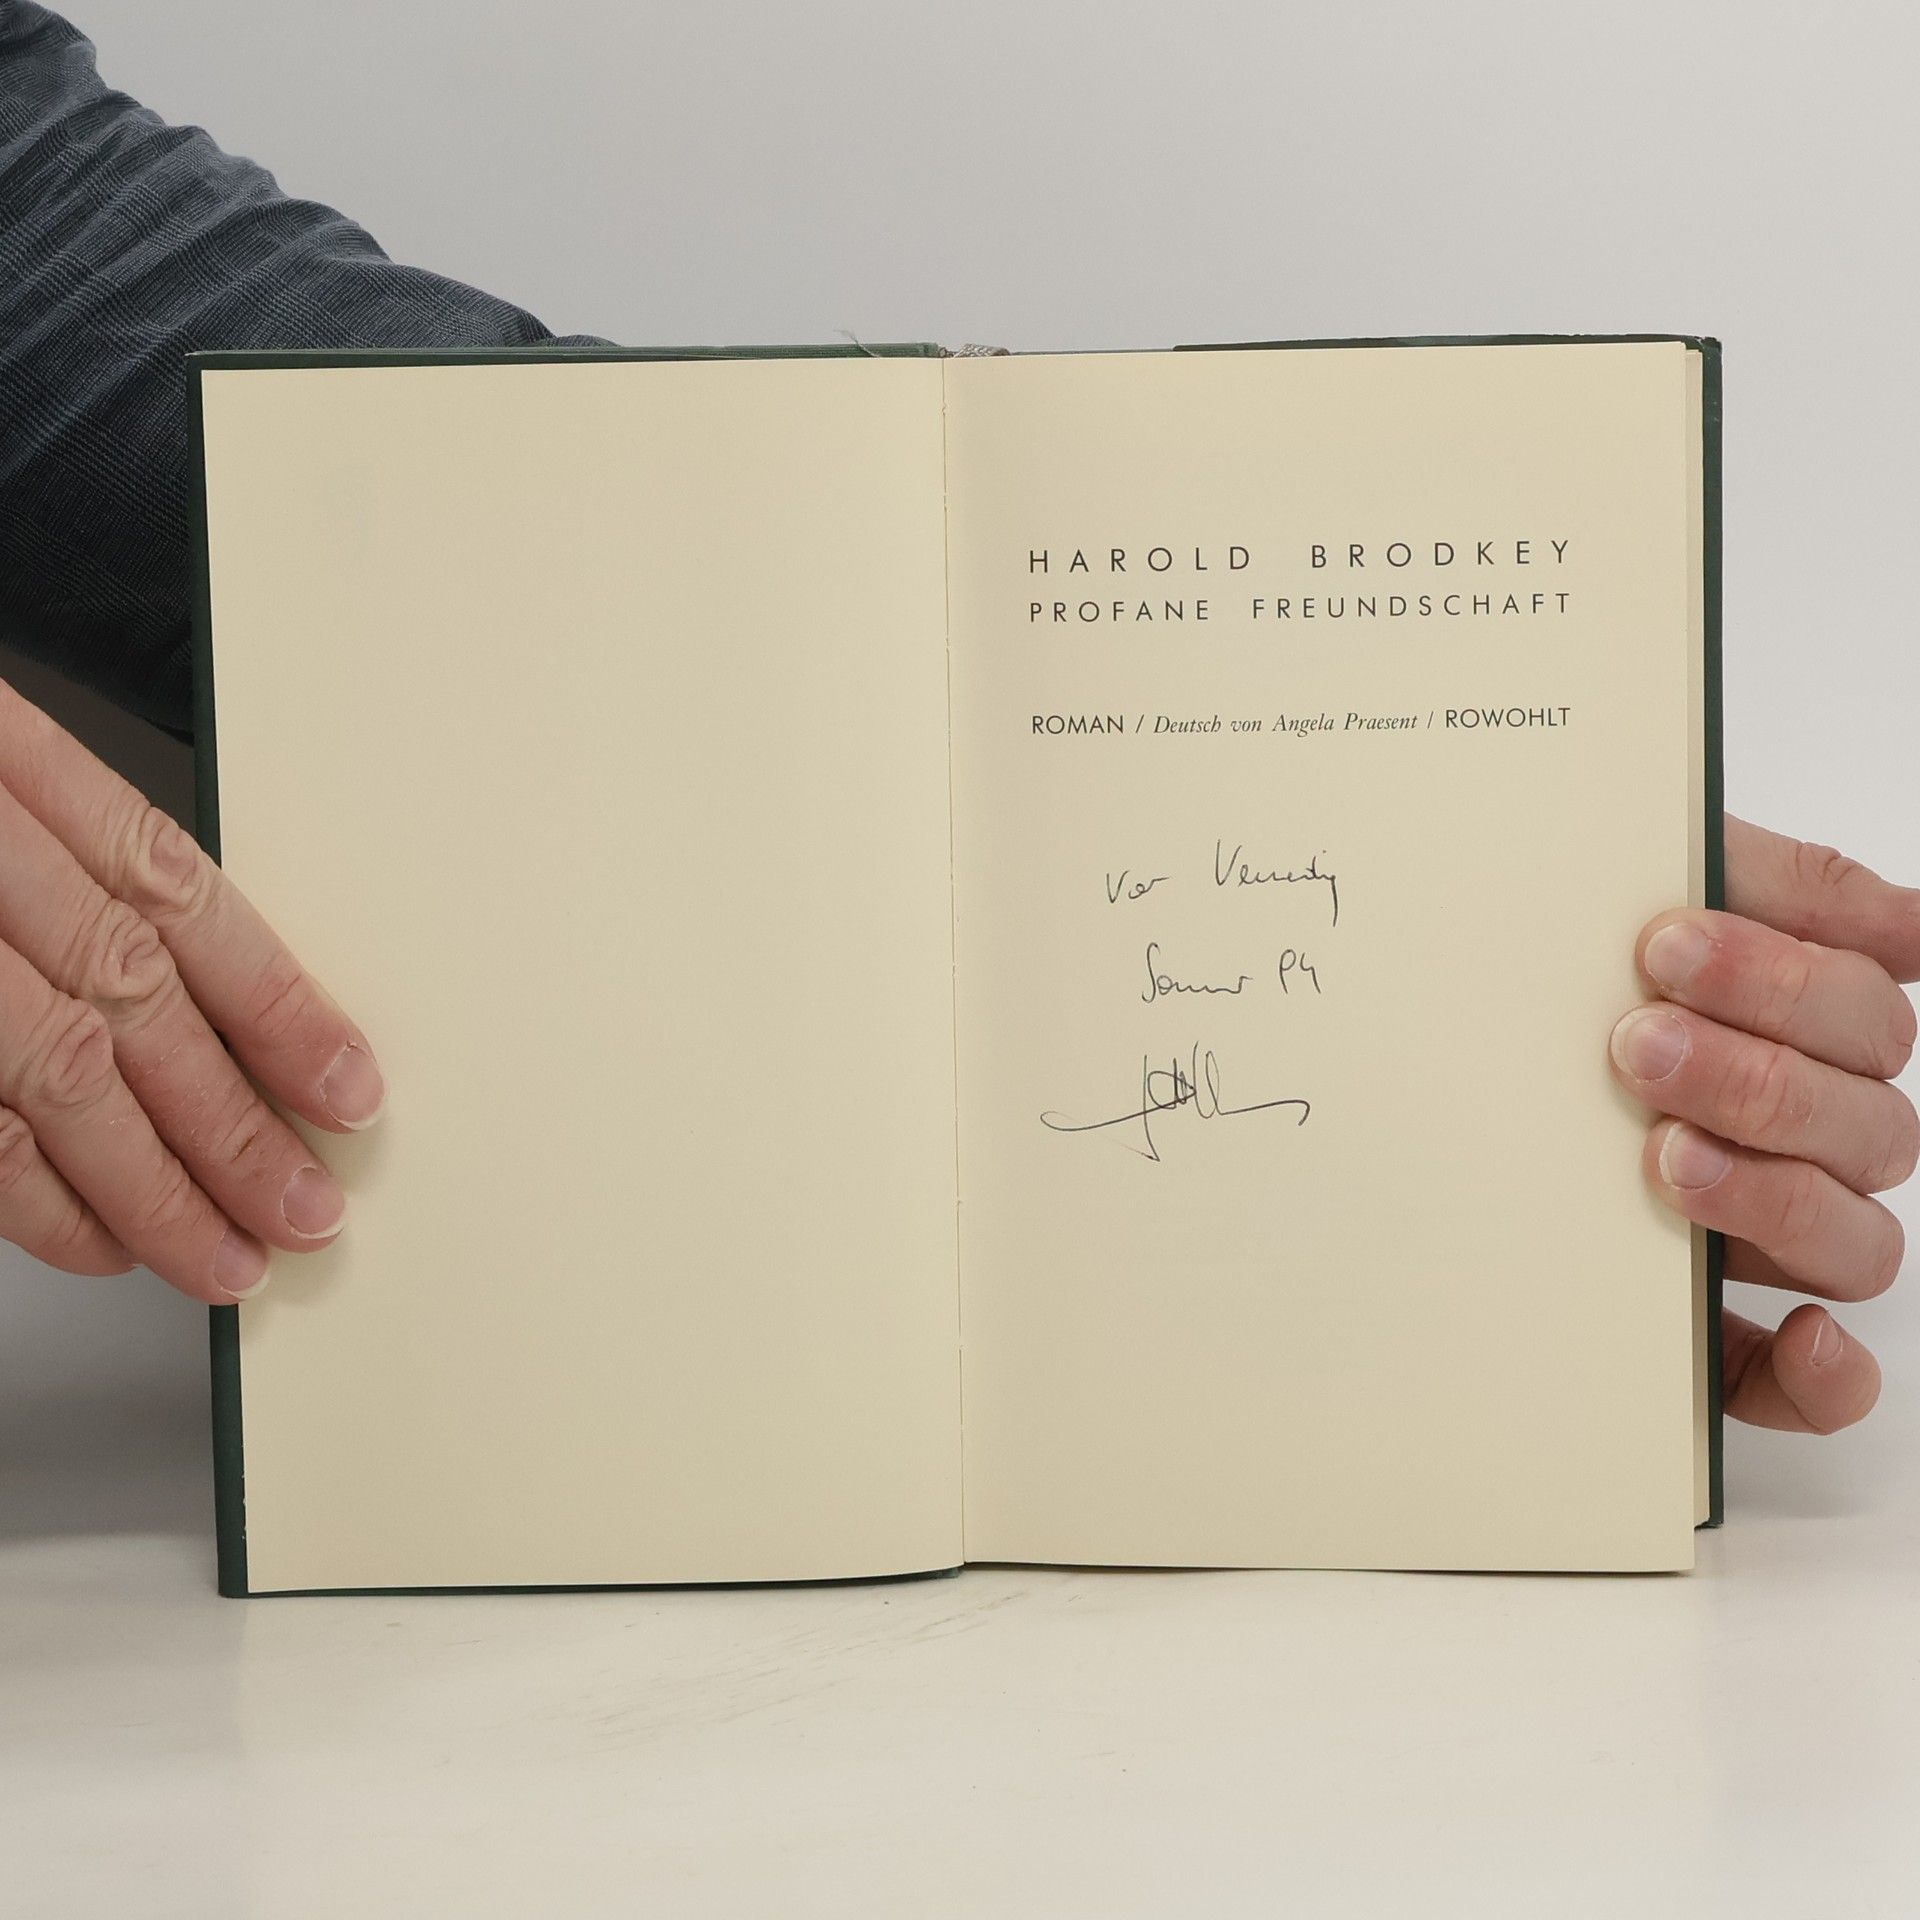 HAROLD BRODKEY
PROFANE FREUNDSCHAFT
ROMAN / Deutsch von Angela Praesent / ROWOHLT
Vor Venedig
Sommer 94